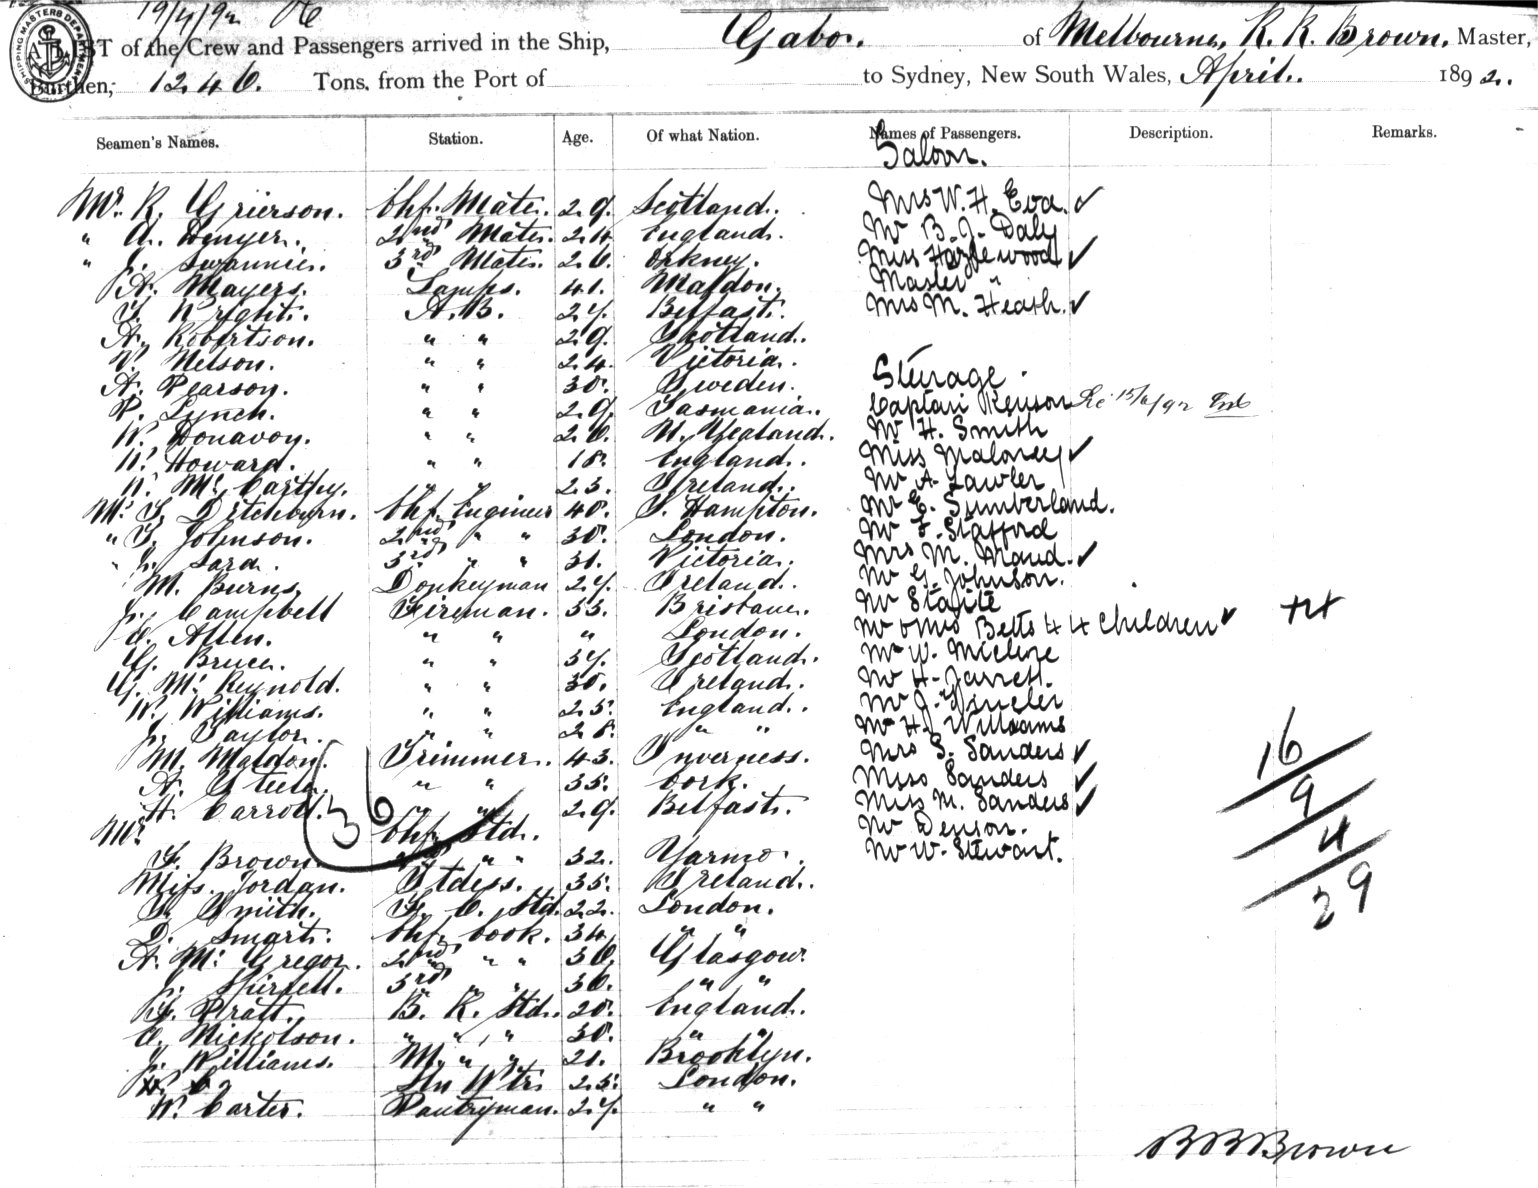 19/4/92
LIST of the Crew and Passengers arrived in the Ship, Gabo. of Melbourne, R. R. Brown, Master,
Burthen, 1246. Tons, from the Port of to Sydney, New South Wales, April. 1892.
SHIPPING MASTERS DEPARTMENT
Seamen's Names. Station. Age. Of what Nation. Names of Passengers. Description. Remarks.
Saloon.
Mr. R. Grierson. Chf. Mate. 29. Scotland. Mrs W. H. Eva. ✓
" A. Denyer. 2nd Mate. 24. England. Mr B. J. Daly
" J. Swannie. 3rd Mate. 26. Orkney. Miss Hazlewood ✓
A. Mayers. Lamps. 41. Maldon. Master "
T. Wright. A.B. 27. Belfast. Mrs M. Heath. ✓
A. Robertson. " " 29. Scotland.
V. Nelson. " " 24. Victoria.
A. Pearson. " " 30. Sweden. Steerage.
P. Lynch. " " 29. Tasmania. Captain Kenson
W. Donavon. " " 26. N. Zealand. Mr H. Smith
W. Howard. " " 18. England. Miss Maloney ✓
W. McCarthy. " " 23. Ireland. Mr A. Lawler
Mr. T. Ditchburn. Chf. Engineer 40. S. Hampton. Mr E. Sumberland.
" T. Johnson. 2nd " " 30. London. Mr F. Stafford
" J. Sara. 3rd " " 31. Victoria. Mrs M. Maud. ✓
M. Burns Donkeyman 27. Ireland. Mr G. Johnson.
J. Campbell Fireman. 33. Brisbane. Mr
C. Allen. " " " London. Mr & Mrs Betts & 4 Children ✓
G. Bruce. " " 37. Scotland. Mr W.
G. McReynold. " " 30. Ireland. Mr H. Jarrett.
W. Williams. " " 25. England. Mr J.
J. Taylor. " " 28. " " Mr H. J. Williams
M. Maldon. Trimmer. 43. Inverness. Mrs S. Sanders ✓
A. Steele. " " 35. Cork. Miss Sanders ✓
H. Carroll. " " 29. Belfast. Miss M. Sanders ✓
Mr. Chf. Std. Mr Denson.
F. Brown. " " 32. Yarmo. Mr W. Stewart.
Miss. Jordan. Stdess. 35. Ireland.
F. Smith. F. C. Std. 22. London.
D. Smart. Chf. Cook. 34. " "
A. McGregor. 2nd " " 36. Glasgow.
J. 3rd " " 36. " "
G. Pratt. B. R. Std. 20. England.
C. Nickolson. " " " 30. " "
J. Williams. M. " " 21. Brooklyn.
Wtr. 25. London.
W. Carter. Pantryman. 27. " "
36
16
9
4
29
R R Brown